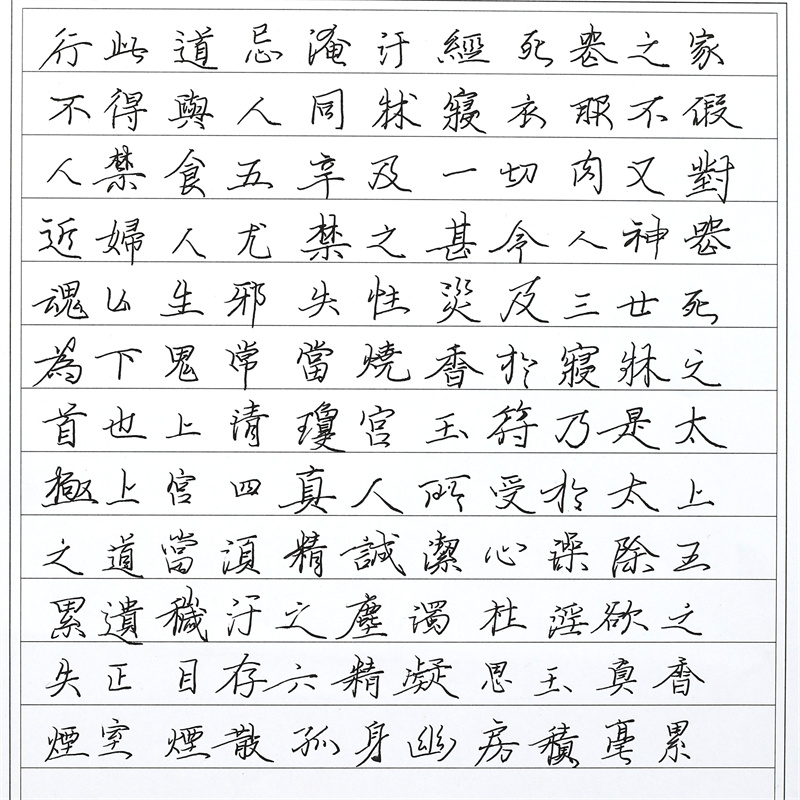 行此道忌淹汙經死丧之家
不得與人同牀寢衣服不假
人禁食五辛及一切肉又對
近婦人尤禁之甚令人神喪
魂亡生邪失性災及三世死
為下鬼常當燒香於寢牀之
首也上清瓊宮玉符乃是太
極上宮四真人所受於太上
之道當須精誠潔心澡除五
累遺穢汙之塵濁杜淫欲之
失正目存六精凝思玉真香
煙室煙散孤身幽房積毫累